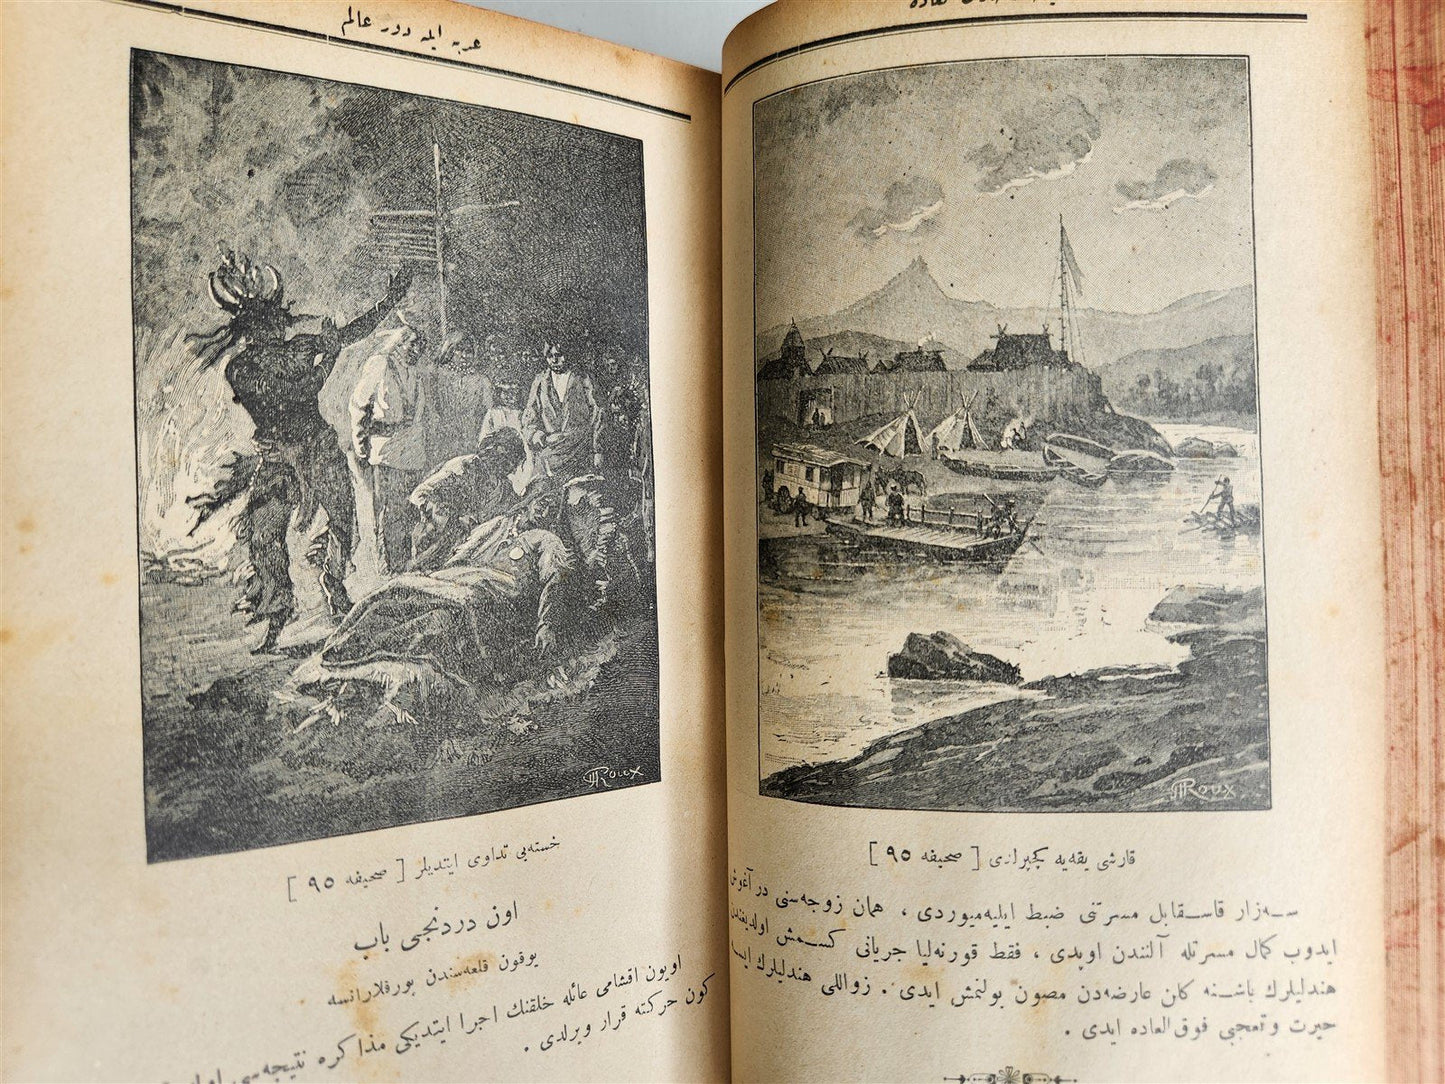 عربه ایله دور عالم
Roux
خسته‌یی تداوی ایتدیلر [ صحیفه ٩٥ ]
اون دردنجی باب
یوقون قلعه‌سندن پورقلارانسه
اویون اقشامی عائله خلقنك اجرا ایتدیکی مذاکره نتیجه‌سی
کون حرکته قرار ویرلدی .
Roux
قارشی یقه‌یه کچیرلدی [ صحیفه ٩٥ ]
سه‌زار قاسقابل مسرتنی ضبط ایلیه‌میوردی ، همان زوجه‌سنی در آغوش
ایدوب کمال مسرتله آلنندن اوپدی ، فقط قورنه‌لیا جریانی کسمش اولدیغندن
هندلیلرك باشنه کلن عارضه‌دن مصون بولنمش ایدی . زواللی هندلیلرك ایسه
حیرت و تعجبی فوق العاده ایدی .